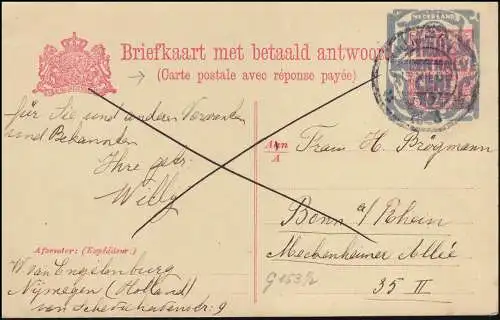 NEDERLAND
Briefkaart met betaald antwoord
(Carte postale avec réponse payée)
für Sie und anderen Verwandten
und Bekannten
Ihre geb.
Willy
Aan
A
Frau H. Brögmann
Bonn a/ Rhein
Meckenheimer Allée
35 II
Afzender: (Expéditeur:)
W. van Engelenburg
Nijmegen (Holland)
9
G 153/2